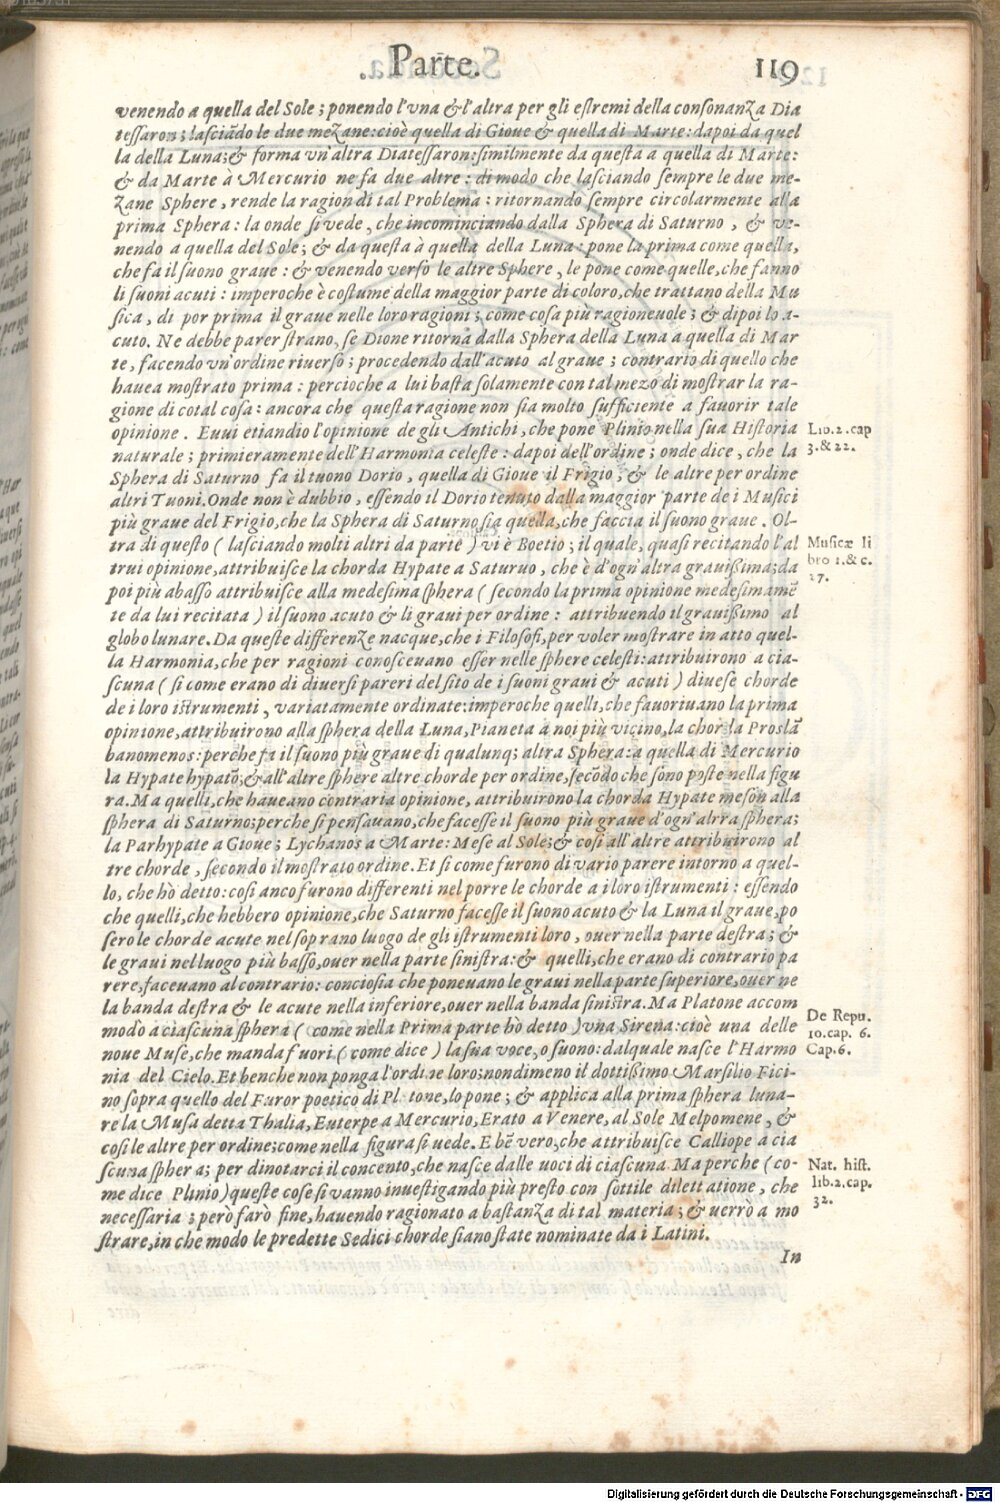 Parte. 119
venendo a quella del Sole; ponendo l'vna & l'altra per gli estremi della consonanza Dia
tessaron; lasciādo le due mezane: cioè quella di Gioue & quella di Marte: dapoi da quel
la della Luna; & forma vn'altra Diatessaron: similmente da questa a quella di Marte:
& da Marte à Mercurio ne fa due altre: di modo che lasciando sempre le due me-
zane Sphere, rende la ragion di tal Problema: ritornando sempre circolarmente alla
prima Sphera: la onde si vede, che incominciando dalla Sphera di Saturno, & ve-
nendo a quella del Sole; & da questa à quella della Luna: pone la prima come quella,
che fa il suono graue: & venendo verso le altre Sphere, le pone come quelle, che fanno
li suoni acuti: imperoche è costume della maggior parte di coloro, che trattano della Mu
sica, di por prima il graue nelle loro ragioni; come cosa più ragioneuole; & dipoi lo a-
cuto. Ne debbe parer strano, se Dione ritorna dalla Sphera della Luna a quella di Mar
te, facendo vn'ordine riuerso; procedendo dall'acuto al graue; contrario di quello che
hauea mostrato prima: percioche a lui basta solamente con tal mezo di mostrar la ra-
gione di cotal cosa: ancora che questa ragione non sia molto sufficiente a fauorir tale
opinione. Euui etiandio l'opinione de gli Antichi, che pone Plinio nella sua Historia
naturale; primieramente dell'Harmonia celeste: dapoi dell'ordine; onde dice, che la
Sphera di Saturno fa il tuono Dorio, quella di Gioue il Frigio, & le altre per ordine
altri Tuoni. Onde non è dubbio, essendo il Dorio tenuto dalla maggior parte de i Musici
più graue del Frigio, che la Sphera di Saturno sia quella, che faccia il suono graue. Ol-
tra di questo (lasciando molti altri da parte) vi è Boetio; il quale, quasi recitando l'al
trui opinione, attribuisce la chorda Hypate a Saturuo, che è d'ogn'altra grauißima; da
poi più abasso attribuisce alla medesima sphera (secondo la prima opinione medesimamē
te da lui recitata) il suono acuto & li graui per ordine: attribuendo il grauißimo al
globo lunare. Da queste differenze nacque, che i Filosofi, per voler mostrare in atto quel-
la Harmonia, che per ragioni conosceuano esser nelle sphere celesti: attribuirono a cia-
scuna (si come erano di diuersi pareri del sito de i suoni graui & acuti) diuese chorde
de i loro istrumenti, variatamente ordinate: imperoche quelli, che fauoriuano la prima
opinione, attribuirono alla sphera della Luna, Pianeta à noi più vicino, la chorda Proslā
banomenos: perche fa il suono più graue di qualunq; altra Sphera: a quella di Mercurio
la Hypate hypatō; & all'altre sphere altre chorde per ordine, secōdo che sono poste nella figu
ra. Ma quelli, che haueano contraria opinione, attribuirono la chorda Hypate meson alla
sphera di Saturno; perche si pensauano, che facesse il suono più graue d'ogn'alrra sphera;
la Parhypate a Gioue; Lychanos a Marte: Mese al Sole; & così all'altre attribuirono al
tre chorde, secondo il mostrato ordine. Et si come furono di vario parere intorno a quel-
lo, che hò detto: così anco furono differenti nel porre le chorde a i loro istrumenti: essendo
che quelli, che hebbero opinione, che Saturno facesse il suono acuto & la Luna il graue, po
sero le chorde acute nel soprano luogo de gli istrumenti loro, ouer nella parte destra; &
le graui nel luogo più basso, ouer nella parte sinistra: & quelli, che erano di contrario pa
rere, faceuano al contrario: conciosia che poneuano le graui nella parte superiore, ouer ne
la banda destra & le acute nella inferiore, ouer nella banda sinistra. Ma Platone accom
modò a ciascuna sphera (come nella Prima parte hò detto) vna Sirena: cioè una delle
noue Muse, che manda fuori (come dice) la sua voce, o suono: dal quale nasce l'Harmo
nia del Cielo. Et benche non ponga l'ordine loro; nondimeno il dottißimo Marsilio Fici-
no sopra quello del Furor poetico di Pl tone, lo pone; & applica alla prima sphera luna-
re la Musa detta Thalia, Euterpe a Mercurio, Erato a Venere, al Sole Melpomene, &
così le altre per ordine; come nella figura si uede. E bē vero, che attribuisce Calliope a cia
scuna sphera; per dinotarci il concento, che nasce dalle uoci di ciascuna. Ma perche (co-
me dice Plinio) queste cose si vanno inuestigando più presto con sottile dilettatione, che
necessaria; però farò fine, hauendo ragionato a bastanza di tal materia; & uerrò a mo
strare, in che modo le predette Sedici chorde siano state nominate da i Latini.
In
Lib. 2. cap
3. & 22.
Musicæ li
bro 1. & c.
27.
De Repu.
10. cap. 6.
Cap. 6.
Nat. hist.
lib. 2. cap.
32.
Digitalisierung gefördert durch die Deutsche Forschungsgemeinschaft - DFG